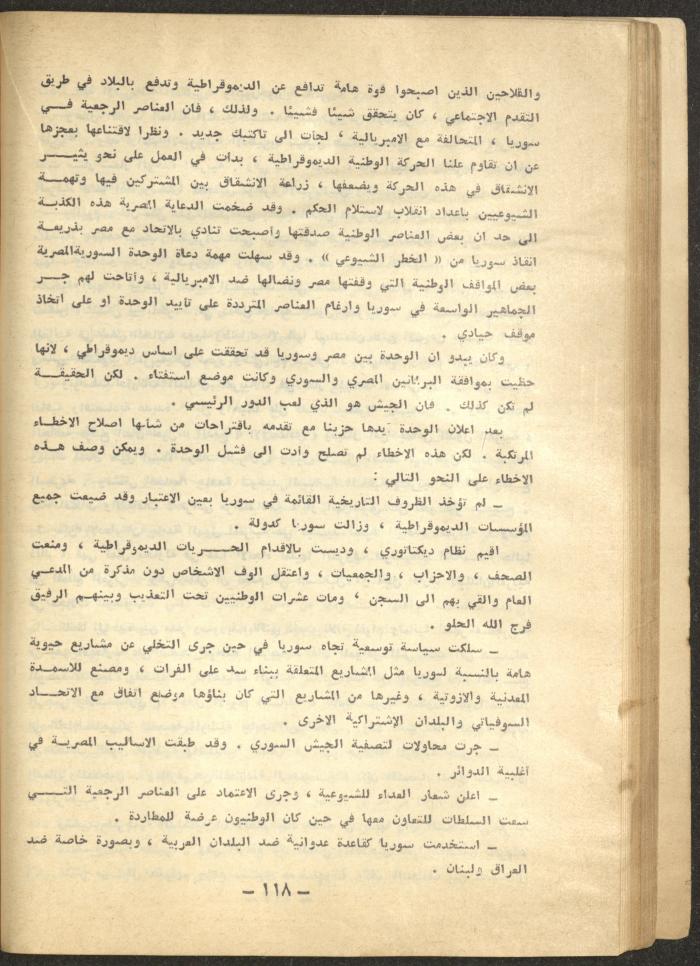 والفلاحين الذين اصبحوا قوة هامة تدافع عن الديموقراطية وتدفع بالبلاد في طريق
التقدم الاجتماعي ، كان يتحقق شيئا فشيئا . ولذلك ، فان العناصر الرجعية فــي
سوريا ، المتحالفة مع الامبريالية ، لجات الى تاكتيك جديد . ونظرا لاقتناعها بعجزها
عن ان تقاوم علنا الحركة الوطنية الديموقراطية ، بدات في العمل على نحو يثيــر
الانشقاق في هذه الحركة ويضعفها ، زراعة الانشقاق بين المشتركين فيها وتهمــة
الشيوعيين باعداد انقلاب لاستلام الحكم . وقد ضخمت الدعاية المصرية هذه الكذبة
الى حد ان بعض العناصر الوطنية صدقتها وأصبحت تنادي بالاتحاد مع مصر بذريعــة
انقاذ سوريا من « الخطر الشيوعي » . وقد سهلت مهمة دعاة الوحدة السوريةالمصرية
بعض المواقف الوطنية التي وقفتها مصر ونضالها ضد الامبريالية ، وأتاحت لهم جــر
الجماهير الواسعة في سوريا وارغام العناصر المترددة على تأييد الوحدة او على اتخاذ
موقف حيادي .
وكان يبدو ان الوحدة بين مصر وسوريا قد تحققت على اساس ديموقراطي ، لانها
حظيت بموافقة البرلمانين المصري والسوري وكانت موضع استفتاء . لكن الحقيقــة
لم تكن كذلك . فان الجيش هو الذي لعب الدور الرئيسي .
بعد اعلان الوحدة أيدها حزبنا مع تقدمه باقتراحات من شأنها اصلاح الاخطاء
المرتكبة . لكن هذه الاخطاء لم تصلح وأدت الى فشل الوحدة . ويمكن وصف هــذه
الاخطاء على النحو التالي :
ــ لم تؤخذ الظروف التاريخية القائمة في سوريا بعين الاعتبار وقد ضيعت جميع
المؤسسات الديموقراطية ، وزالت سوريا كدولة .
اقيم نظام ديكتاتوري ، وديست بالاقدام الحــــريات الديموقراطية ، ومنعت
الصحف ، والاحزاب ، والجمعيات ، واعتقل الوف الاشخاص دون مذكرة من المدعــي
العام والقي بهم الى السجن ، ومات عشرات الوطنيين تحت التعذيب وبينهــم الرفيق
فرج الله الحلو .
ــ سلكت سياسة توسعية تجاه سوريا في حين جرى التخلي عن مشاريع حيوية
هامة بالنسبة لسوريا مثل المشاريع المتعلقة ببناء سد على الفرات ، ومصنع للاسمدة
المعدنية والازوتية ، وغيرها من المشاريع التي كان بناؤها موضع اتفاق مع الاتحــاد
السوفياتي والبلدان الاشتراكية الاخرى .
ــ جرت محاولات لتصفية الجيش السوري . وقد طبقت الاساليب المصرية في
أغلبية الدوائر .
ــ اعلن شعار العداء للشيوعية ، وجرى الاعتماد على العناصر الرجعية التــــي
سعت السلطات للتعاون معها في حين كان الوطنيون عرضة للمطاردة .
ــ استخدمت سوريا كقاعدة عدوانية ضد البلدان العربية ، وبصورة خاصة ضد
العراق ولبنان .
ــ ١١٨ ــ